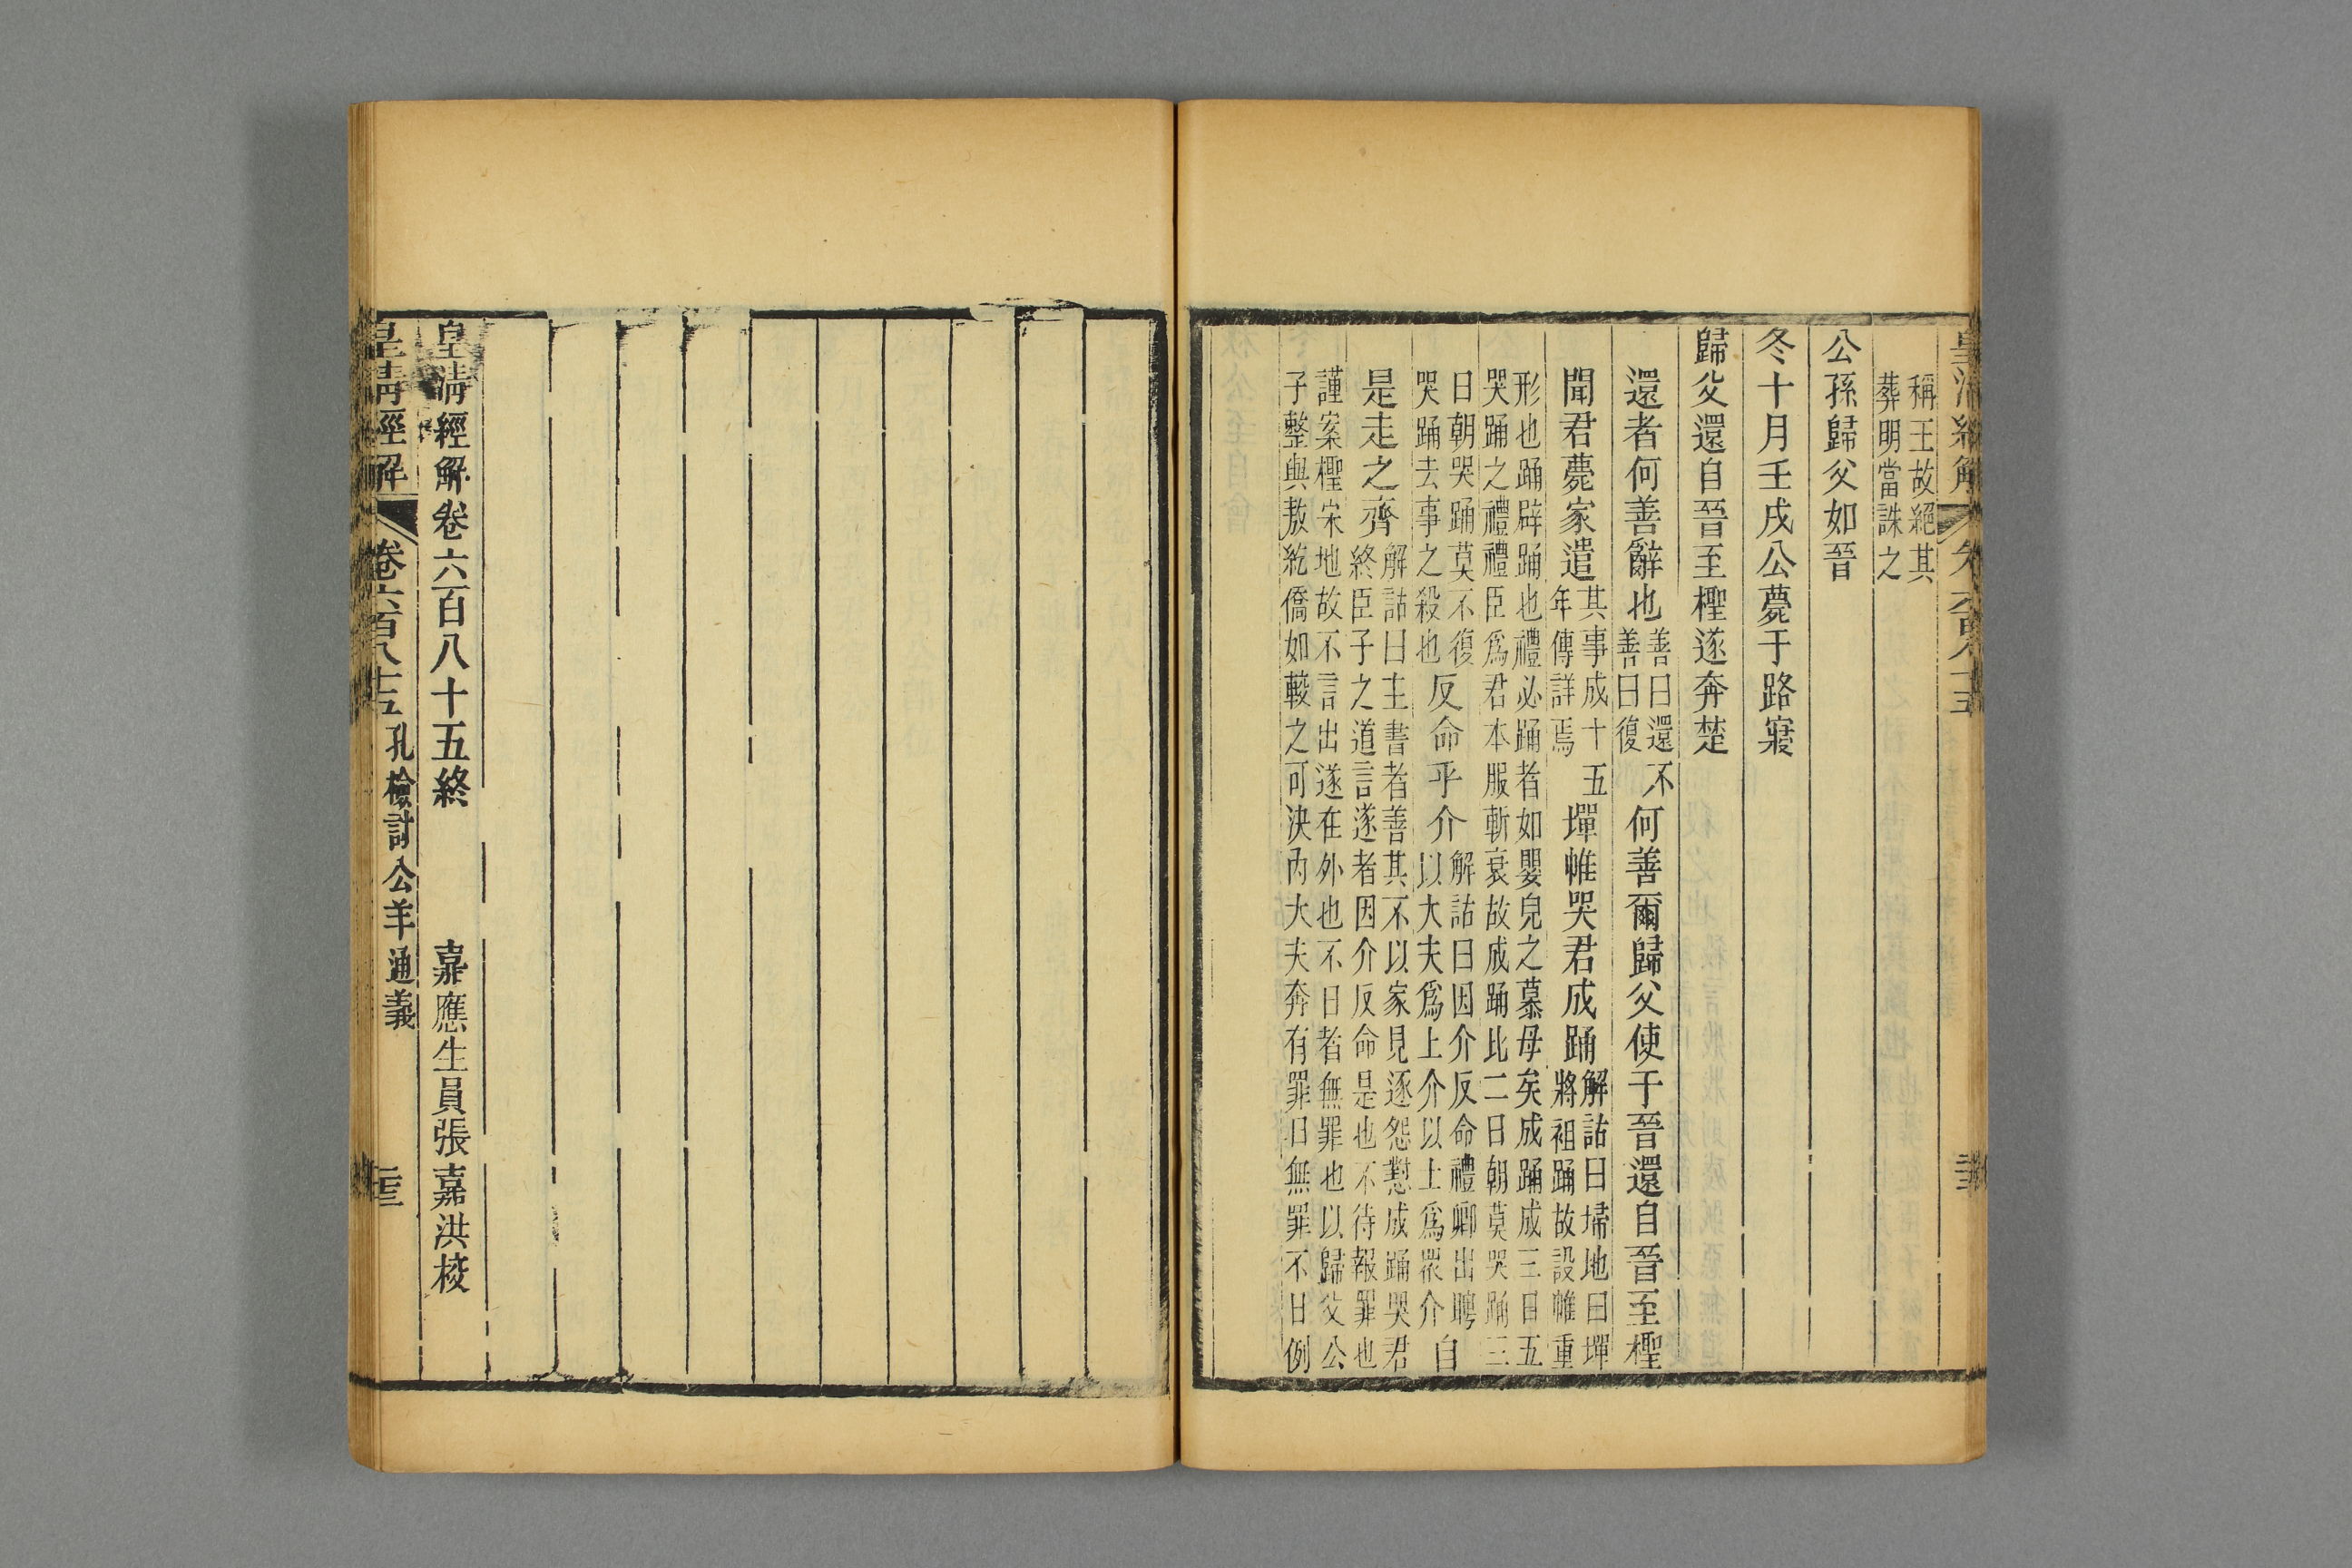 皇清經解 卷六百八十五
稱王故絕其
葬明當誅之
公孫歸父如晉
冬十月壬戌公薨于路寢
歸父還自晉至檉遂奔楚
還者何善辭也善曰還不善曰復何善爾歸父使于晉還自晉至檉
聞君薨家遣其事成十五年傳詳焉墠帷哭君成踊解詁曰埽地曰墠將袒踊故設帷重
形也踊辟踊也禮必踊者如嬰兒之慕母矣成踊成三日五
哭踊之禮禮臣爲君本服斬衰故成踊比二日朝莫哭踊三
日朝哭踊莫不復哭踊去事之殺也反命乎介解詁曰因介反命禮卿出聘以大夫爲上介以上爲眾介自
是走之齊解詁曰主書者善其不以家見逐怨懟成踊哭君終臣子之道言遂者因介反命是也不待報罪也
謹案檉宋地故不言出遂在外也不日者無罪也以歸父公
子整與敖紇僑如較之可決內大夫奔有罪日無罪不日例
皇清經解卷六百八十五終 嘉應生員張嘉洪校
皇清經解 卷六百八十五 孔檢討公羊通義